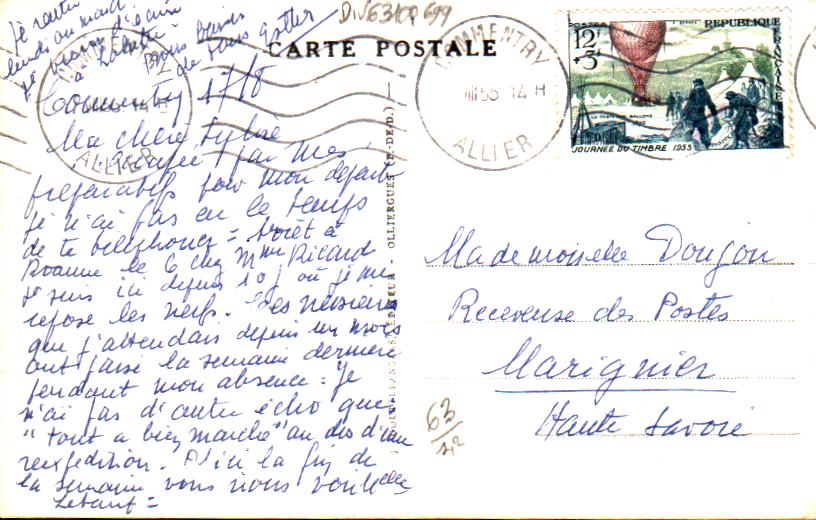 Je rentre
lundi ou mardi
DIV63400 699
CARTE POSTALE
COMMENTRY
ALLIER
COMMENTRY
VIII 55 14 H
ALLIER
POSTES
REPUBLIQUE
FRANÇAISE
12F
+3F
LA POSTE PAR BALLONS
JOURNEE DU TIMBRE 1955
Commentry 17/8
Ma chère
par mes
préparatifs pour mon départ
je n'ai pas eu le temps
de te téléphoner = Arrêt à
Roanne le 6 chez Mme Ricard
Je suis ici depuis 10 j où je me
repose les nerfs. Les
que j'attendais depuis un mois
ont passé la semaine dernière
pendant mon absence : Je
n'ai pas d'autre écho que
"tout a bien marché" au dos d'une
reexpédition. D'ici la fin de
la semaine vous nous
OLLIERGUES (P.-DE-D.)
Mademoiselle Doujon
Receveuse des Postes
Marignier
Haute Savoie
63